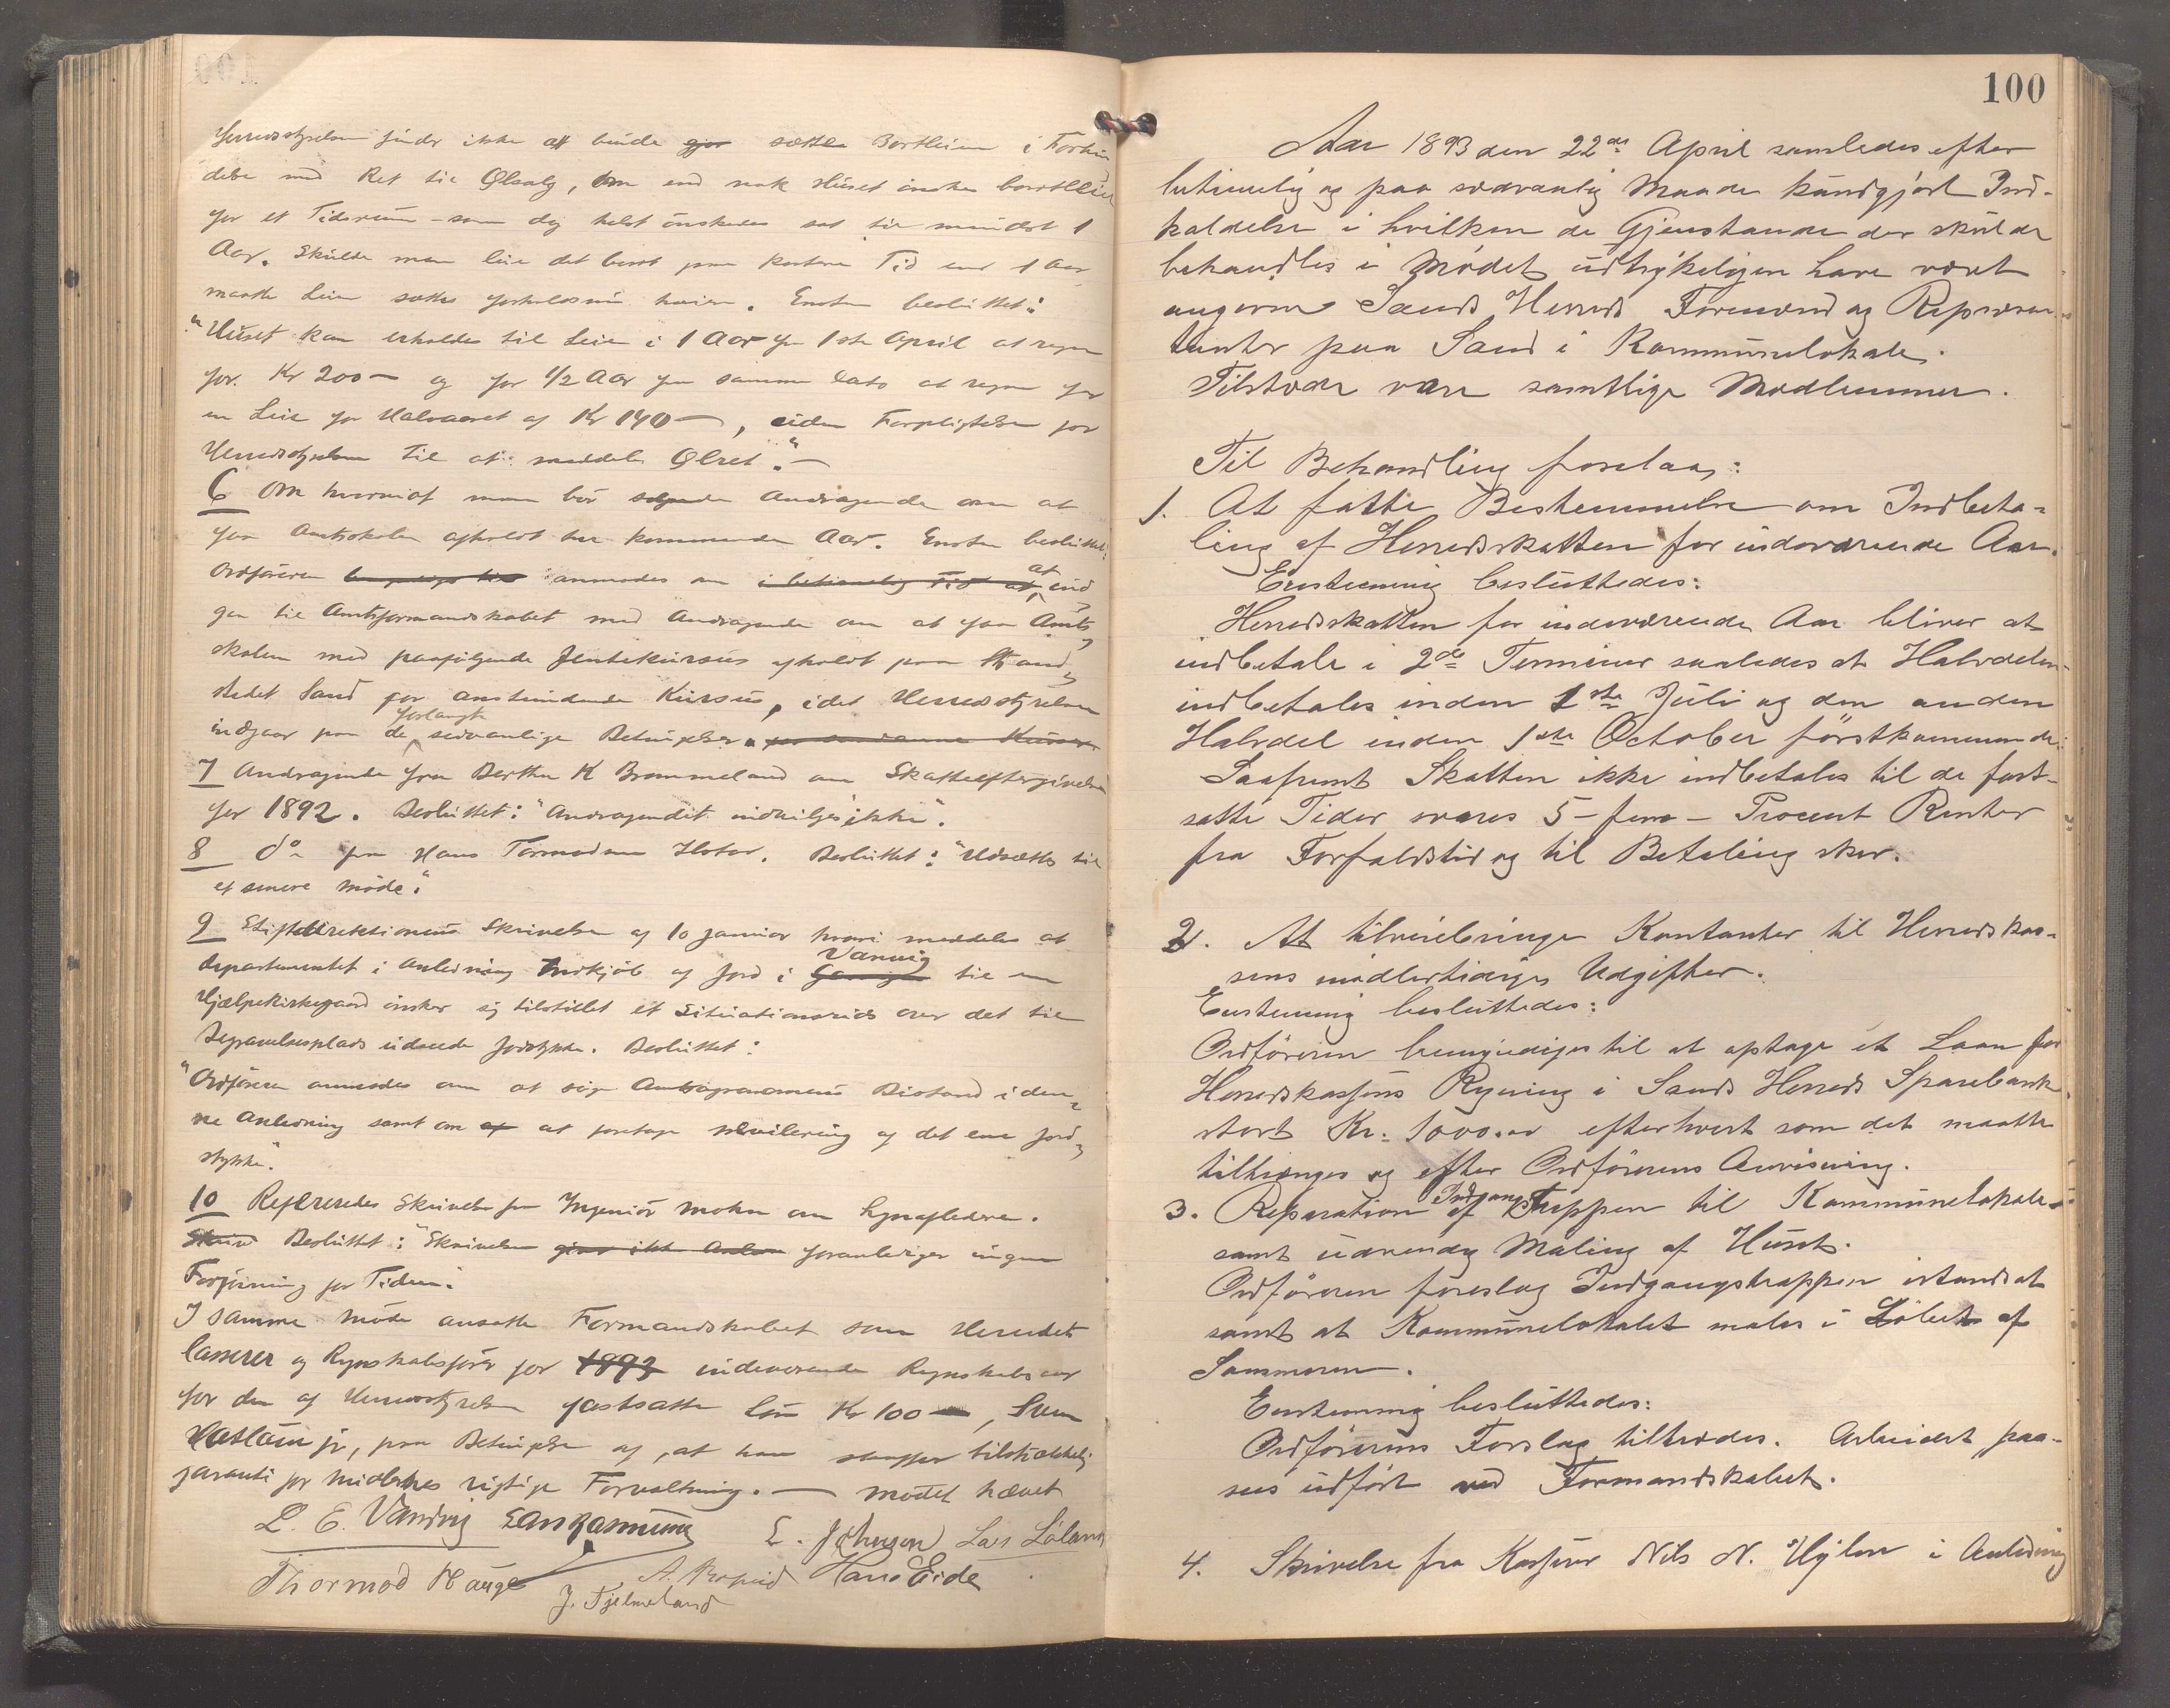 Herredsstyrelsen finder ikke at burde gjør sætte Bortleien i Forbin
delse med Ret til Ølsalg, om end nok Huset ønskes bortleiet
for et Tidsrum – som dog helst ønskedes sat til mindst 1
Aar. Skulde man leie det bort paa kortere Tid end 1 Aar
maatte Leien sættes forholdsvis høiere. Enst. besluttet:
"Huset kan erholdes til Leie i 1 Aar fra 1ste April at regne
for Kr 200 – og for 1/2 Aar fra samme Dato at regne for
en Leie for Halvaaret af Kr 140 –, uden Forpligtelse for
Herredsstyrelsen til at meddele Ølret." –
6 Om hvorvidt man bør Andragende om at
faa Amtsskolen afholdt her kommende Aar. Enst. besluttet:
Ordføreren anmodes om i betimelig Tid at at ind
gaa til Amtsformandskabet med Andragende om at faa Amts
skolen med paafølgende Jentekursus afholdt paa Strand
stedet Sand for anstundende Kursus, idet Herredsstyrelsen
indgaar paa de forlangte sedvanlige Betingelser.
7 Andragende fra Berthe K Brommeland om Skatteeftergivelse
for 1892. Besluttet: "Andragendet indvilges ikke".
8 do fra Hans Tormodsen. Besluttet: "Udsættes til
et senere Møde".
9 Stiftsdirektionens Skrivelse af 10 Januar hvori meddeles at
Departementet i Anledning Indkjøb af Jord i Vanvig til en
Hjælpekirkegaard ønsker sig tilstillet et Situationsrids over det til
Begravelsesplads udseede Jordstykke. Besluttet:
"Ordføreren anmodes om at søge Amtsagronomens Bistand i den
ne Anledning samt om af at foretage nivellering af det ene Jord
stykke".
10 Refereredes Skrivelse fra Ingeniør Mohn om Lynafledere.
Skriv Besluttet: "Skrivelsen giver ikke Anled foranlediger ingen
Forføining for Tiden".
I samme Møde ansatte Formandskabet som Herredets
Casserer og Regnskabsfører for 1893 indeværende Regnskabsaar
for den af Herredsstyrelsen fastsatte Løn Kr 100 –, Sven
jr, paa Betingelse af, at han skaffer tilstrækkelig
garanti for Midlernes rigtige Forvaltning. – Mødet hævet
L. E. Vanvig E. Johnson Lars Løland
Thormod Hauge J. Fjelmeland Hans Eide
100
Aar 1893 den 22de April samledes efter
betimelig og paa sædvanlig Maade kundgjort Ind-
kaldelse i hvilken de Gjenstande der skulde
behandles i Mødet udtrykeligen have været
angivne Sands Herreds Formænd og Repræsen-
tanter paa Sand i Kommunelokalet.
Tilstede vare samtlige Medlemmer.
Til Behandling forelaa:
1. At fatte Bestemmelse om Indbeta-
ling af Herredsskatten for indeværende Aar.
Enstemmig besluttedes:
Herredsskatten for indeværende Aar bliver at
indbetale i 2de Terminer saaledes at Halvdelen
indbetales inden 1ste Juli og den anden
Halvdel inden 1ste October førstkommende.
Saafremt Skatten ikke indbetales til de fast-
satte Tider svares 5 – fem – Procent Renter
fra Forfaldstid og til Betaling sker.
2. At tilveiebringe Kontanter til Herredskas-
sens midlertidige Udgifter.
Enstemmig besluttedes:
Ordføreren bemyndiges til at optage et Laan for
Herredskassens Regning i Sands Herreds Sparebank
stort Kr. 1000.00 efterhvert som det maatte
tiltrænges og efter Ordførerens Anvisning.
3. Reparation af Indgangs Trappen til Kommunelokalet
samt udvendig Maling af Huset.
Ordføreren foreslog Indgangstrappen istandsat
samt at Kommunelokalet males i Løbet af
Sommeren.
Enstemmig besluttedes:
Ordførerens Forslag tiltrædes. Arbeidet paa-
sees udført ved Formandskabet.
4. Skrivelse fra Kasserer Nils N. Hylen i Anledning